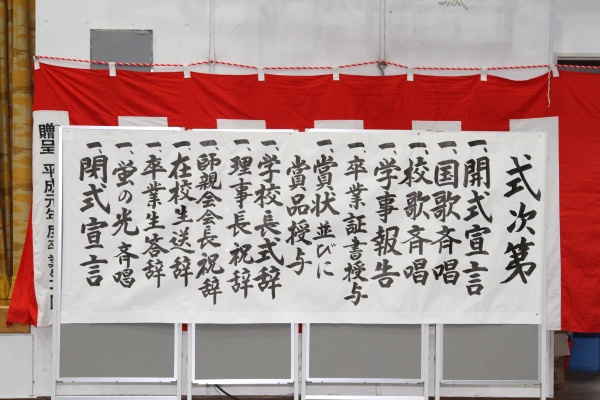 式次第
一、開式宣言
一、国歌斉唱
一、校歌斉唱
一、学事報告
一、卒業証書授与
一、賞状並びに
賞品授与
一、学校長式辞
一、理事長祝辞
一、師親会会長祝辞
一、在校生送辞
一、卒業生答辞
一、蛍の光斉唱
一、閉式宣言
贈呈 平成元年度卒